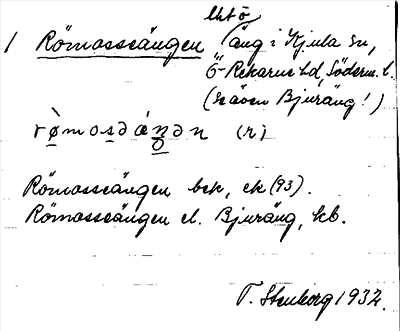 1 Römosseängen (äng i Kjula sn,
Ö-Rekarne hd, Söderm. l.
(se även Bjuräng!)
(r)
Römosseängen bek, ek (93).
Römosseängen el. Bjuräng, kb.
T. Stenborg 1932.